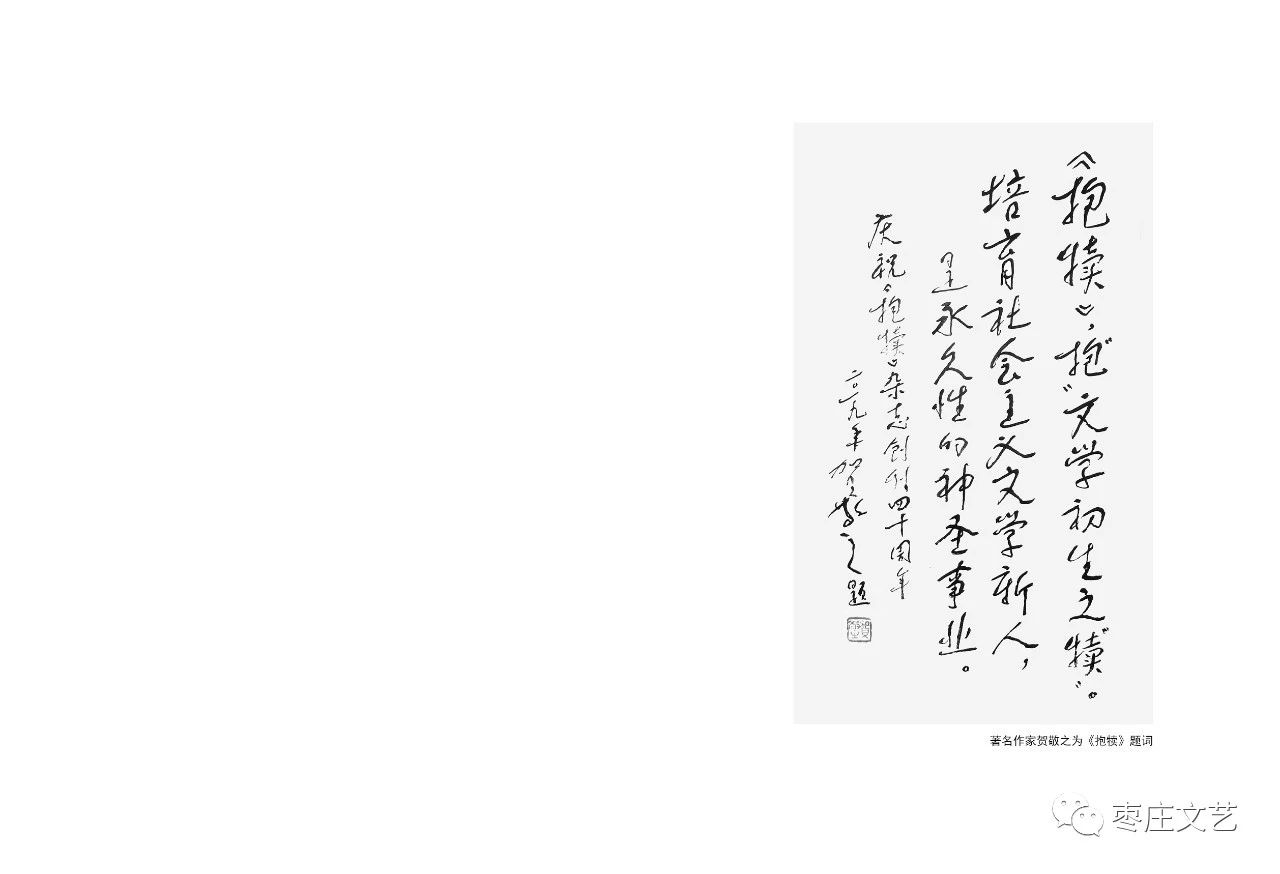 《抱犊》,抱“文学初生之犊”。
培育社会主义文学新人,
是永久性的神圣事业。
庆祝《抱犊》杂志创刊四十周年
二〇一九年 贺敬之题
著名作家贺敬之为《抱犊》题词
枣庄文艺